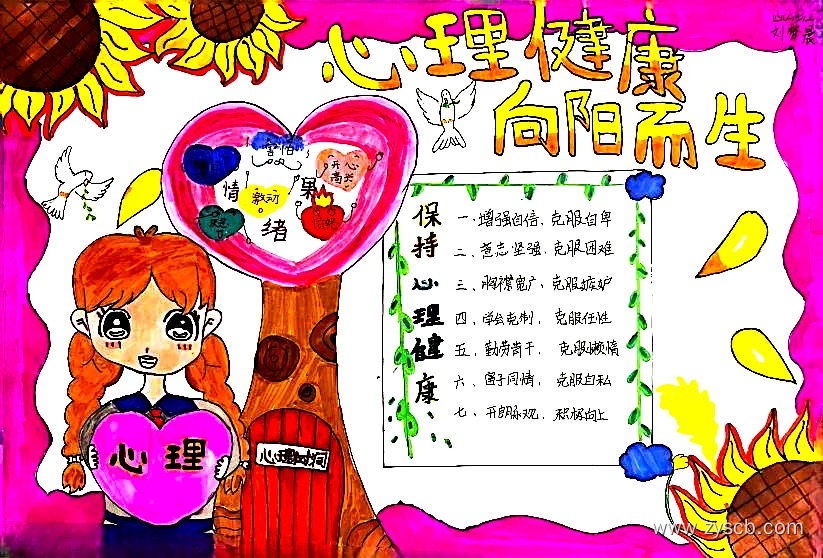 刘梦晨
心理健康
向阳而生
害怕
开心
高兴
情
激动
果
绪
保持心理健康
一、增强自信，克服自卑
二、意志坚强，克服困难
三、胸襟宽广，克服嫉妒
四、学会克制，克服任性
五、勤劳肯干，克服懒惰
六、富于同情，克服自私
七、开朗乐观，积极向上
心理
www.zyscb.com